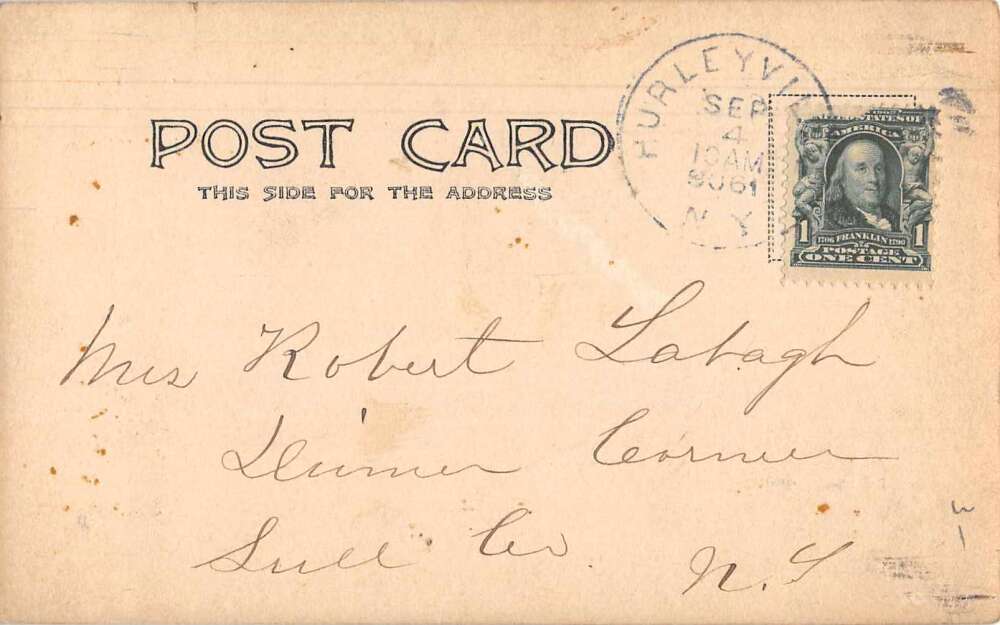 POST CARD
THIS SIDE FOR THE ADDRESS
HURLEYVIL
SEP
4
10AM
N.Y.
UNITED STATES OF
AMERICA
1 1706 FRANKLIN 1790 1
POSTAGE
ONE CENT
Mrs Robert Labagh
Corner
Sull Co
N.Y